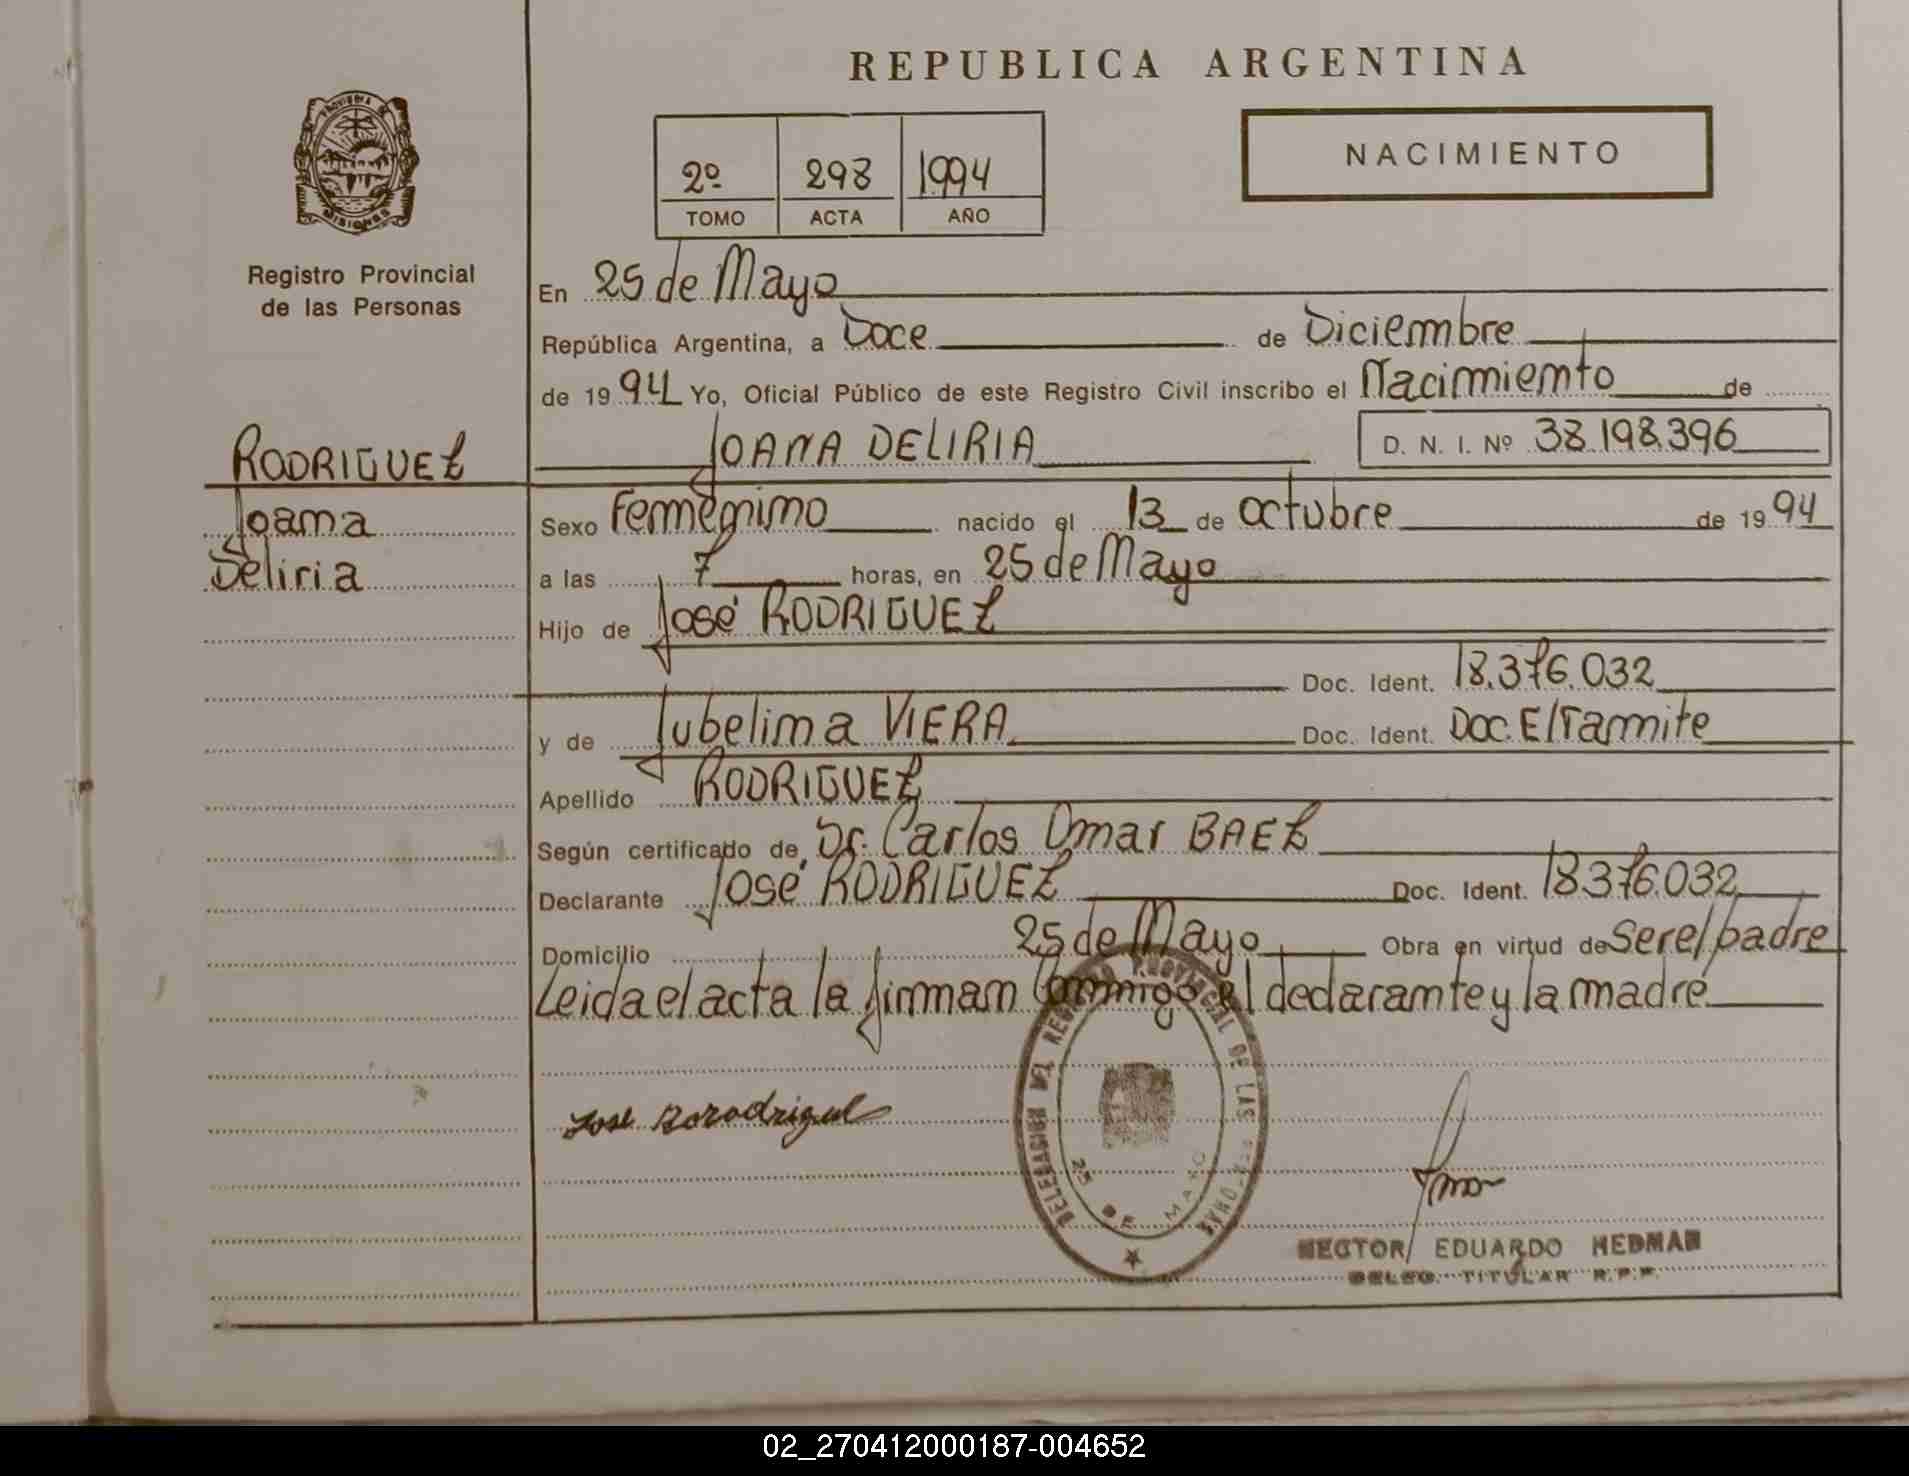 REPUBLICA ARGENTINA
PROVINCIA DE
MISIONES
Registro Provincial
de las Personas
2º 298 1994
TOMO ACTA AÑO
NACIMIENTO
En 25 de Mayo
República Argentina, a Doce de Diciembre
de 1994 Yo, Oficial Público de este Registro Civil inscribo el Nacimiento de
JOANA DELIRIA D. N. I. Nº 38.198.396
RODRIGUEZ
Joana
Deliria
Sexo Femenino nacido el 13 de octubre de 1994
a las 7 horas, en 25 de Mayo
Hijo de José RODRIGUEZ
Doc. Ident. 18.376.032
y de Jubelina VIERA Doc. Ident. Doc. E/Tramite
Apellido RODRIGUEZ
Según certificado de Dr. Carlos Omar BAEZ
Declarante José RODRIGUEZ Doc. Ident. 18.376.032
Domicilio 25 de Mayo Obra en virtud de Ser el padre
Leida el acta la firman Conmigo el declarante y la madre
Jose Rorodriguel
DELEGACION DEL REGISTRO PROVINCIAL DE LAS PERSONAS
25 DE MAYO
HECTOR EDUARDO HEDMAN
DELEG. TITULAR R.P.P.
02_270412000187-004652